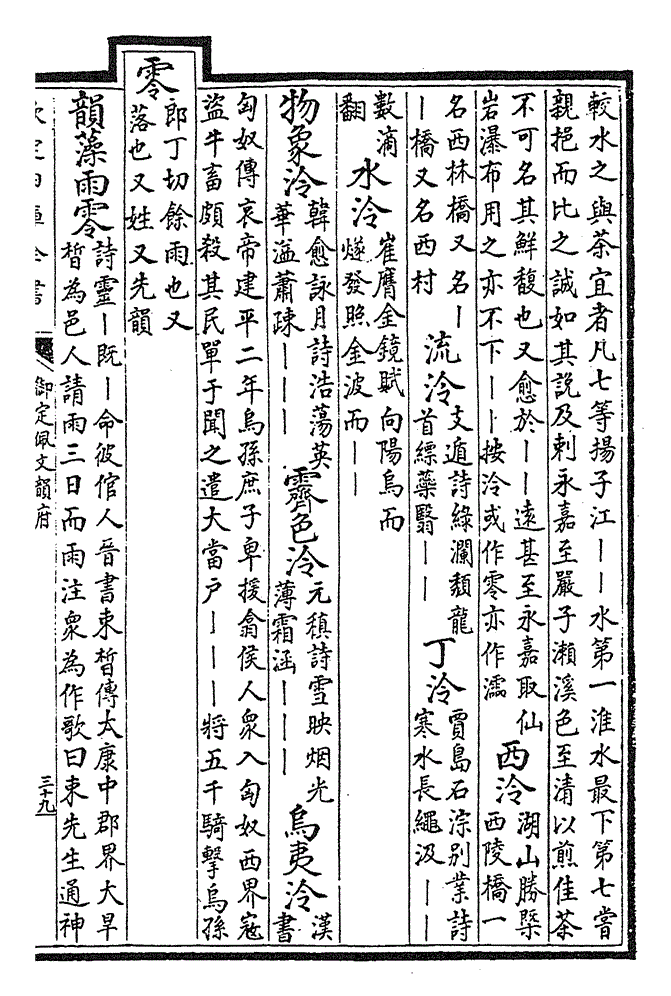 較水之與茶宜者凡七等揚子江｜｜水第一淮水最下第七嘗
親挹而比之誠如其說及刺永嘉至嚴子瀨溪色至清以煎佳茶
不可名其鮮馥也又愈於｜｜遠甚至永嘉取仙
岩瀑布用之亦不下｜｜按泠或作零亦作澪
西泠
湖山勝槩
西陵橋一
名西林橋又名｜
｜橋又名西村
流泠
支遁詩綠瀾頹龍
首縹蘂翳｜｜
丁泠
賈島石淙别業詩
寒水長繩汲｜｜
數滴
翻
水泠
崔膺金鏡賦向陽烏而
燧發照金波而｜｜
物象泠
韓愈詠月詩浩蕩英
華溢蕭疎｜｜｜
霽色泠
元稹詩雪映烟光
薄霜涵｜｜｜
烏夷泠
漢
書
匈奴傳哀帝建平二年烏孫庶子卑援翕侯人衆入匈奴西界寇
盜牛畜頗殺其民單于聞之遣大當户｜｜｜將五千騎擊烏孫
零
郎丁切餘雨也又
落也又姓又先韻
韻藻雨零
詩靈｜既｜命彼倌人晉書束晳傳太康中郡界大旱
晳為邑人請雨三日而雨注衆為作歌曰束先生通神
欽定四庫全書
御定佩文韻府
三十九